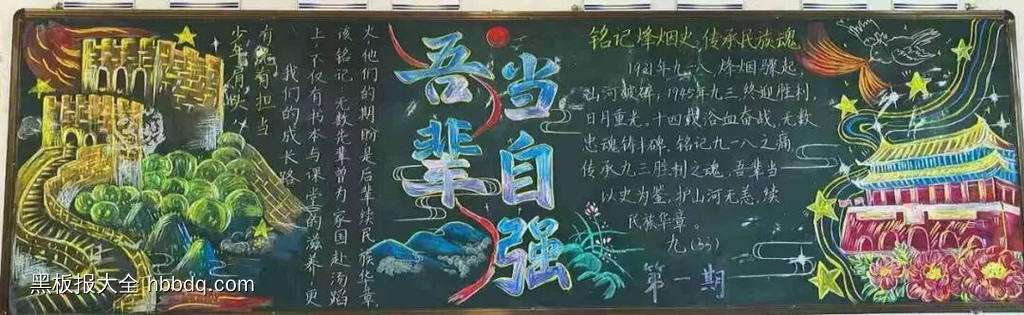 少年肩
有光有担当
我们的成长路
上,不仅有书本与课堂的滋养,更
该铭记:无数先辈曾为家国赴汤蹈
火他们的期盼是后辈续民族华章.
吾辈
当自强
铭记烽烟史 传承民族魂
1931年九一八,烽烟骤起,
山河破碎,1945年九三终迎胜利,
日月重光。十四载浴血奋战,无数
忠魂铸丰碑。铭记九一八之痛
传承九三胜利之魂,吾辈当
以史为鉴,护山河无恙,续
民族华章。
九(33)
第一期
黑板报大全 hbbdq.com